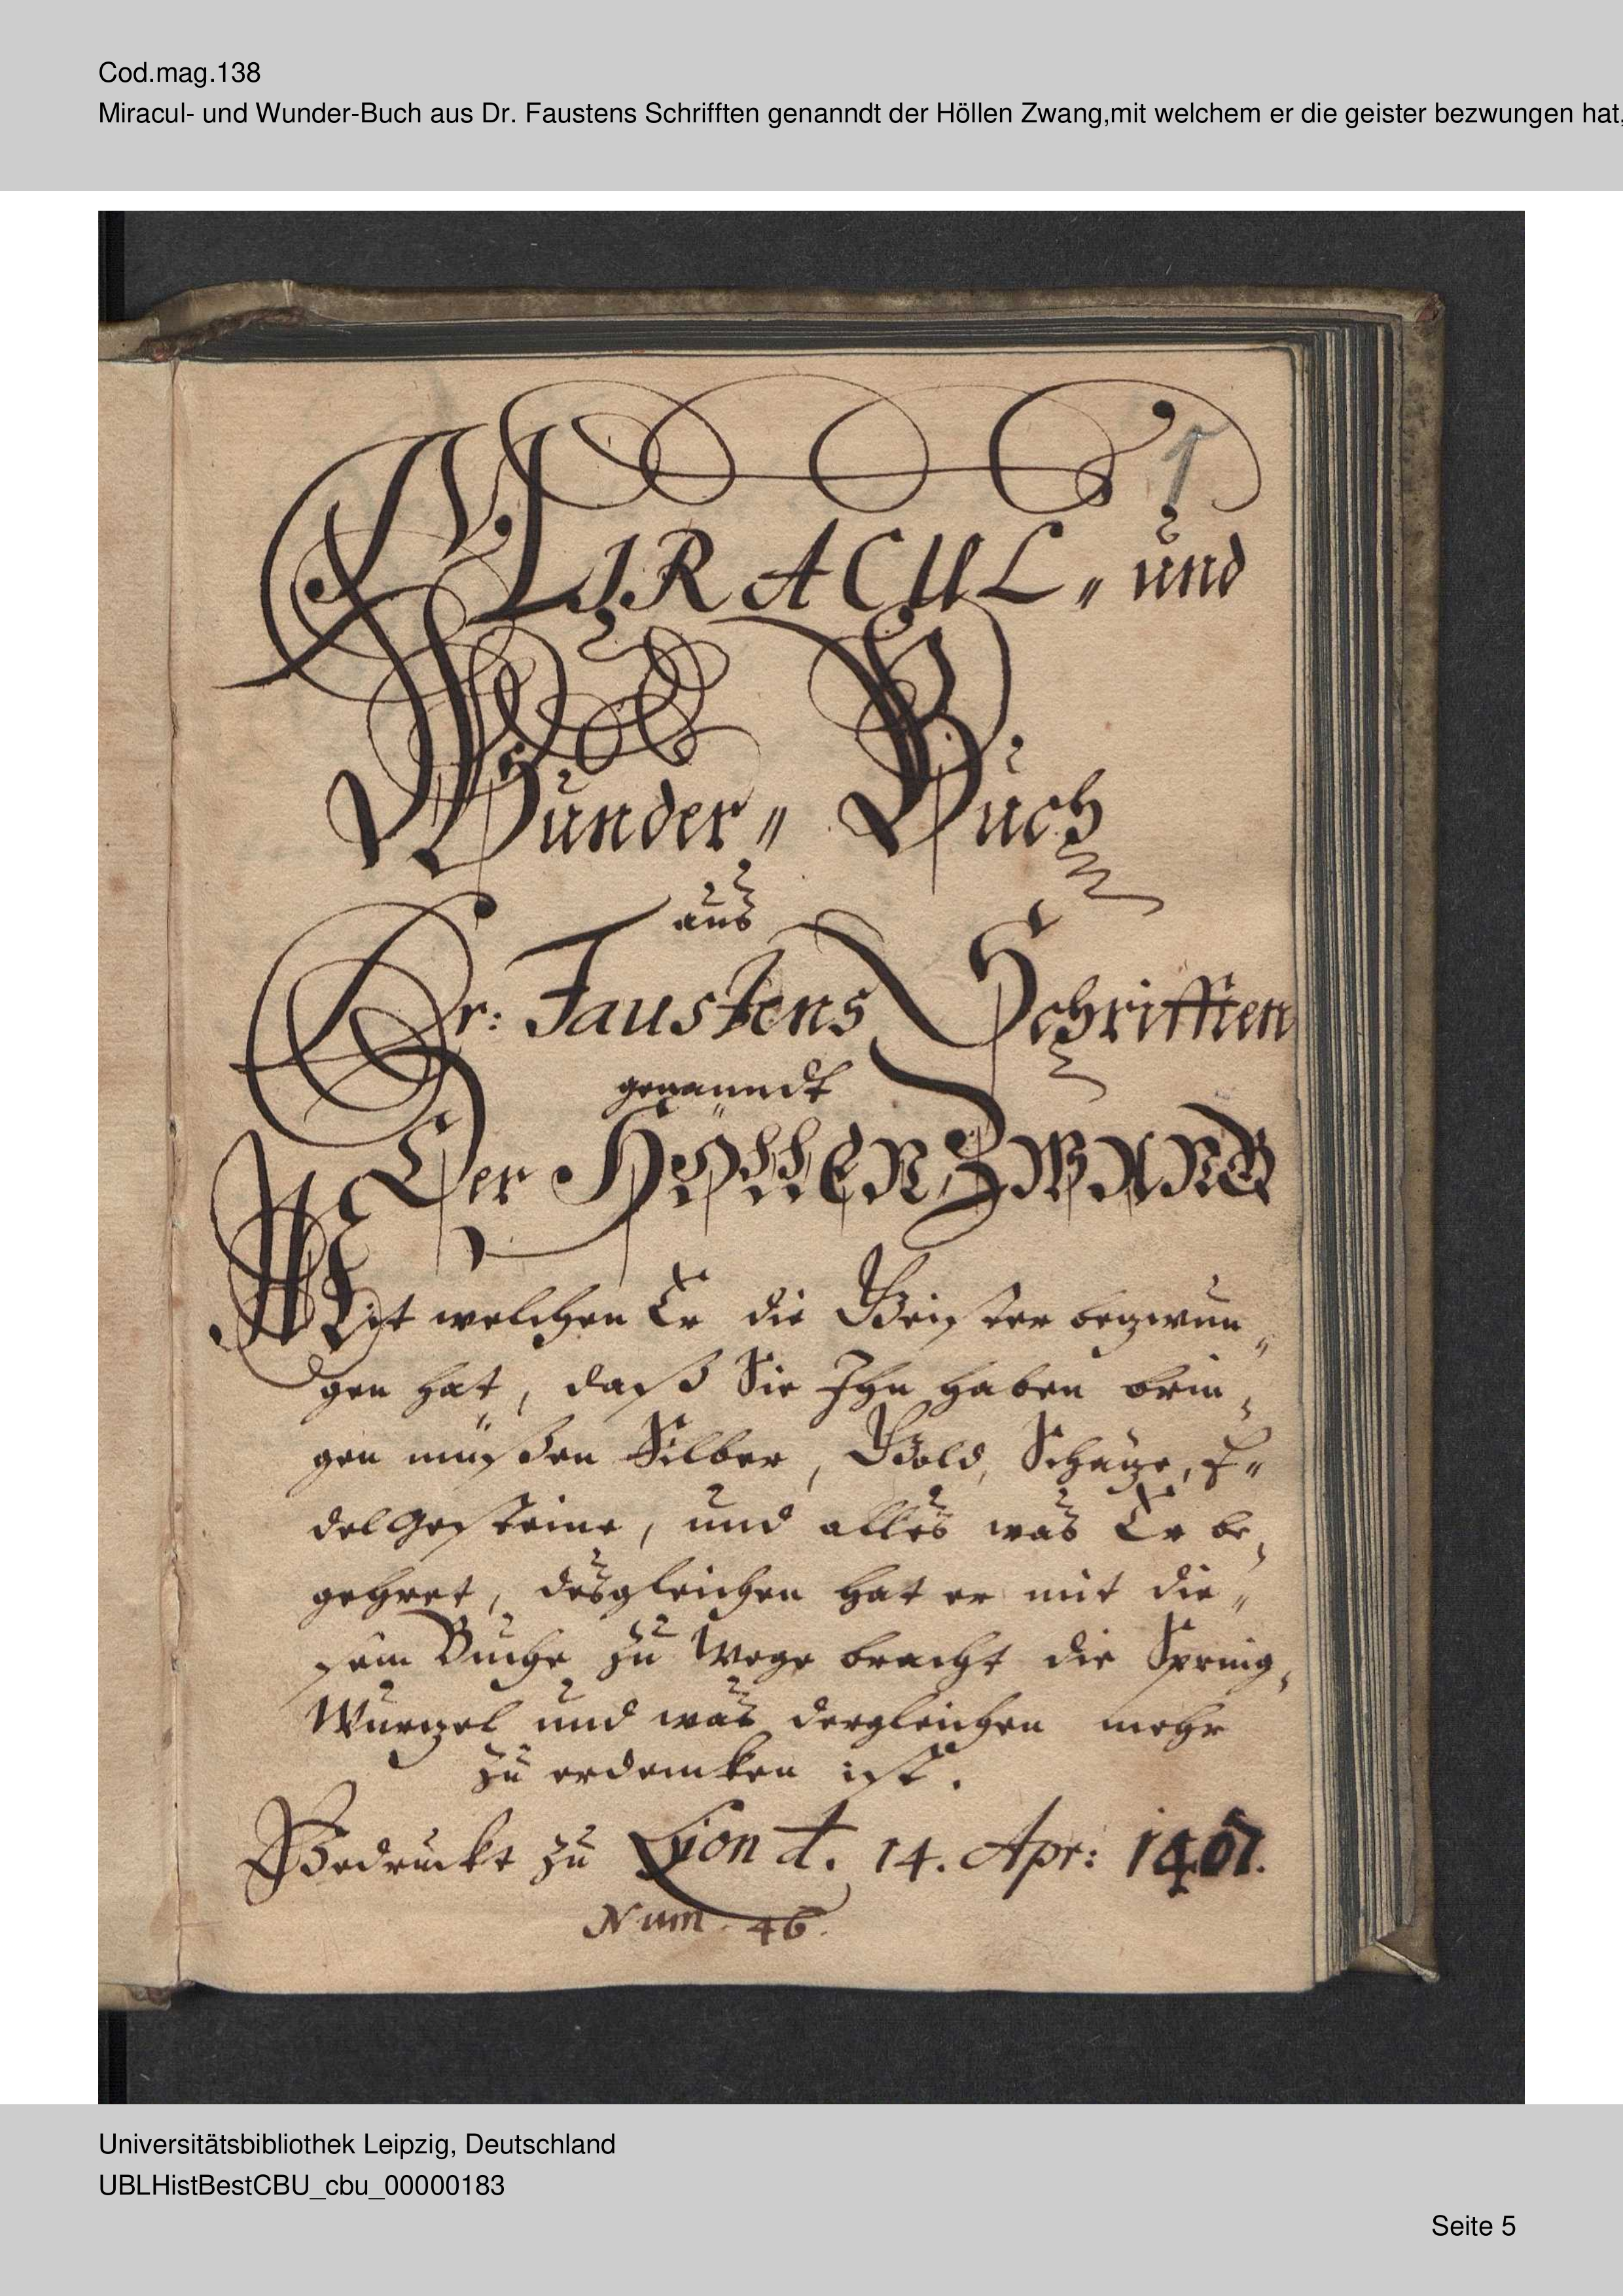 Cod.mag.138
Miracul- und Wunder-Buch aus Dr. Faustens Schrifften genanndt der Höllen Zwang,mit welchem er die geister bezwungen hat,
1
MIRACUL„ und
Wunder„ Buch
aus
Dr: Faustens Schrifften
genanndt
Der HöllEN ZWANG
Mit welchen Er die Geister bezwun„
gen hat, daß Sie Ihn haben brin„
gen müßen Silber, Gold, Schäze, E„
delGesteine, und alles was Er be„
gehret, desgleichen hat er mit die„
sem Buche zu Wege bracht die Spring„
Wurzel und was dergleichen mehr
zu erdencken ist.
Gedruckt zu Lion d. 14. Apr: 1407.
Num. 46.
Universitätsbibliothek Leipzig, Deutschland
UBLHistBestCBU_cbu_00000183
Seite 5